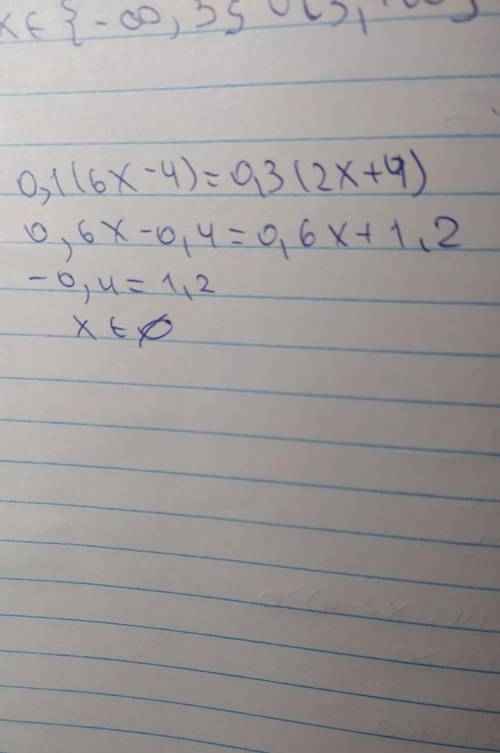 0,1(6x-4)=0,3(2x+4)
0,6x-0,4=0,6x+1,2
-0,4=1,2
x∈∅